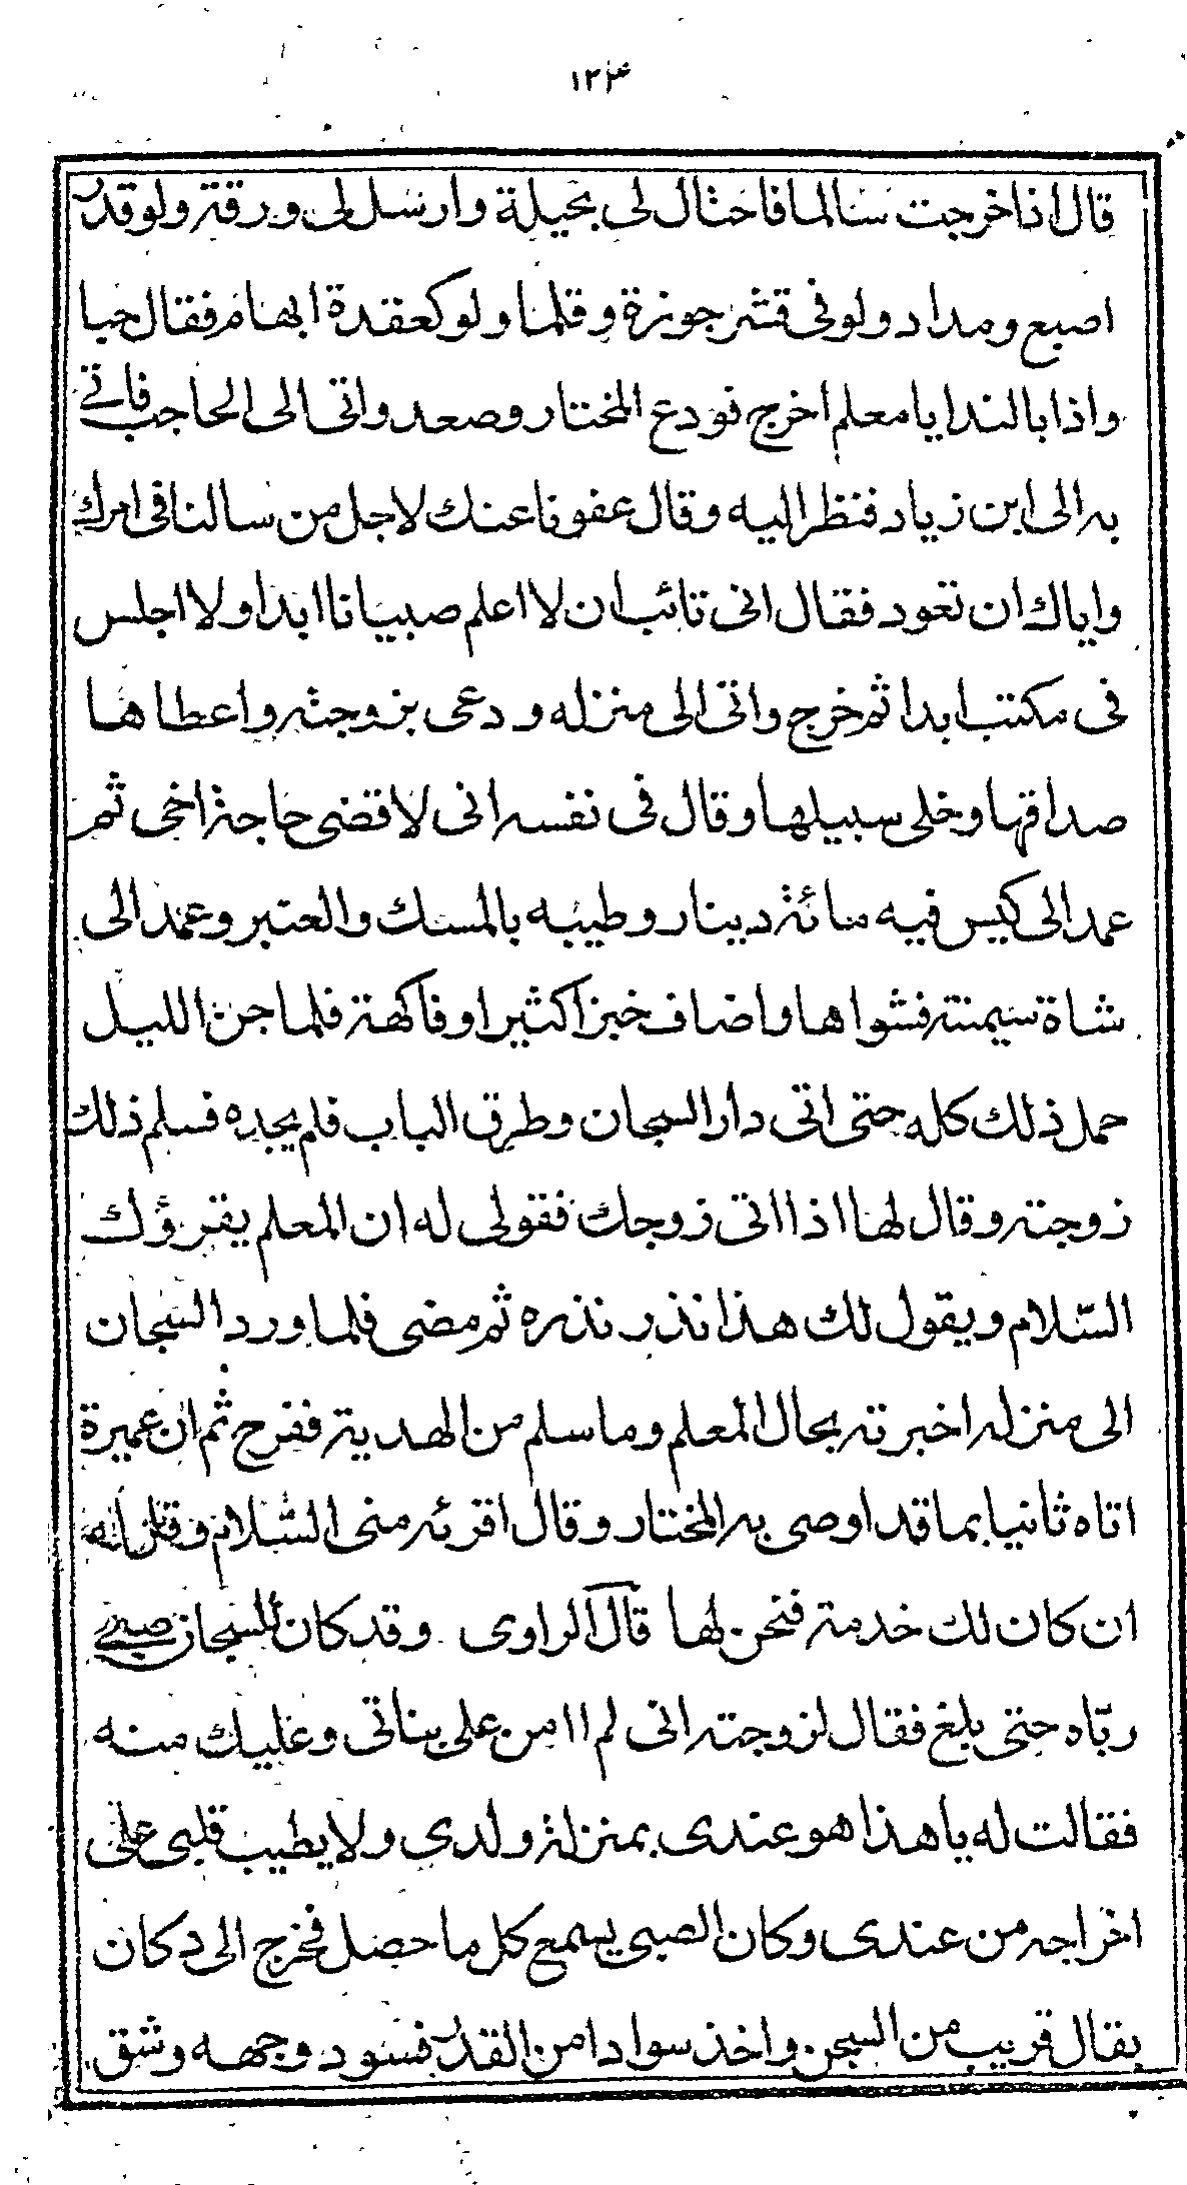 ١٣٤
قال اذا خرجت سالما فاحتال لى بحيلة وارسل لى ورقة ولو قدر
اصبع ومداد ولو فى قشر جوزة وقلما ولو كعقدة ابهام فقال حبا
واذا بالندا يا معلم اخرج فودع المختار وصعد واتى الى الحاجب فاتى
به الى ابن زياد فنظر اليه وقال عفونا عنك لاجل من سالنا فى امرك
واياك ان تعود فقال انى تائب ان لا اعلم صبيانا ابدا ولا اجلس
فى مكتب ابدا ثم خرج واتى الى منزله ودعى بزوجته واعطاها
صداقها وخلى سبيلها وقال فى نفسه انى لاقضى حاجة اخى ثم
عمد الى كيس فيه مائة دينار وطيبه بالمسك والعنبر وعمد الى
شاة سمينة فشواها واضاف خبزا كثيرا وفاكهة فلما جن الليل
حمل ذلك كله حتى اتى دار السجان وطرق الباب فلم يجده فسلم ذلك
زوجته وقال لها اذا اتى زوجك فقولى له ان المعلم يقرؤك
السّلام ويقول لك هذا نذر نذره ثم مضى فلما ورد السجان
الى منزله اخبرته بحال المعلم وما سلم من الهدية ففرح ثم ان عميرة
اتاه ثانيا بما قد اوصى به المختار وقال اقرئه منى السّلام وقل له
ان كان لك خدمة فنحن لها قال الراوى وقد كان للسجان صبى
ربّاه حتى بلغ فقال لزوجته انى لم اامن على بناتى وعليك منه
فقالت له يا هذا هو عندى بمنزلة ولدى ولا يطيب قلبى على
اخراجه من عندى وكان الصبى يسمع كل ما حصل فخرج الى دكان
بقال قريب من السجن واخذ سوادا من القدر فسود وجهه وشق